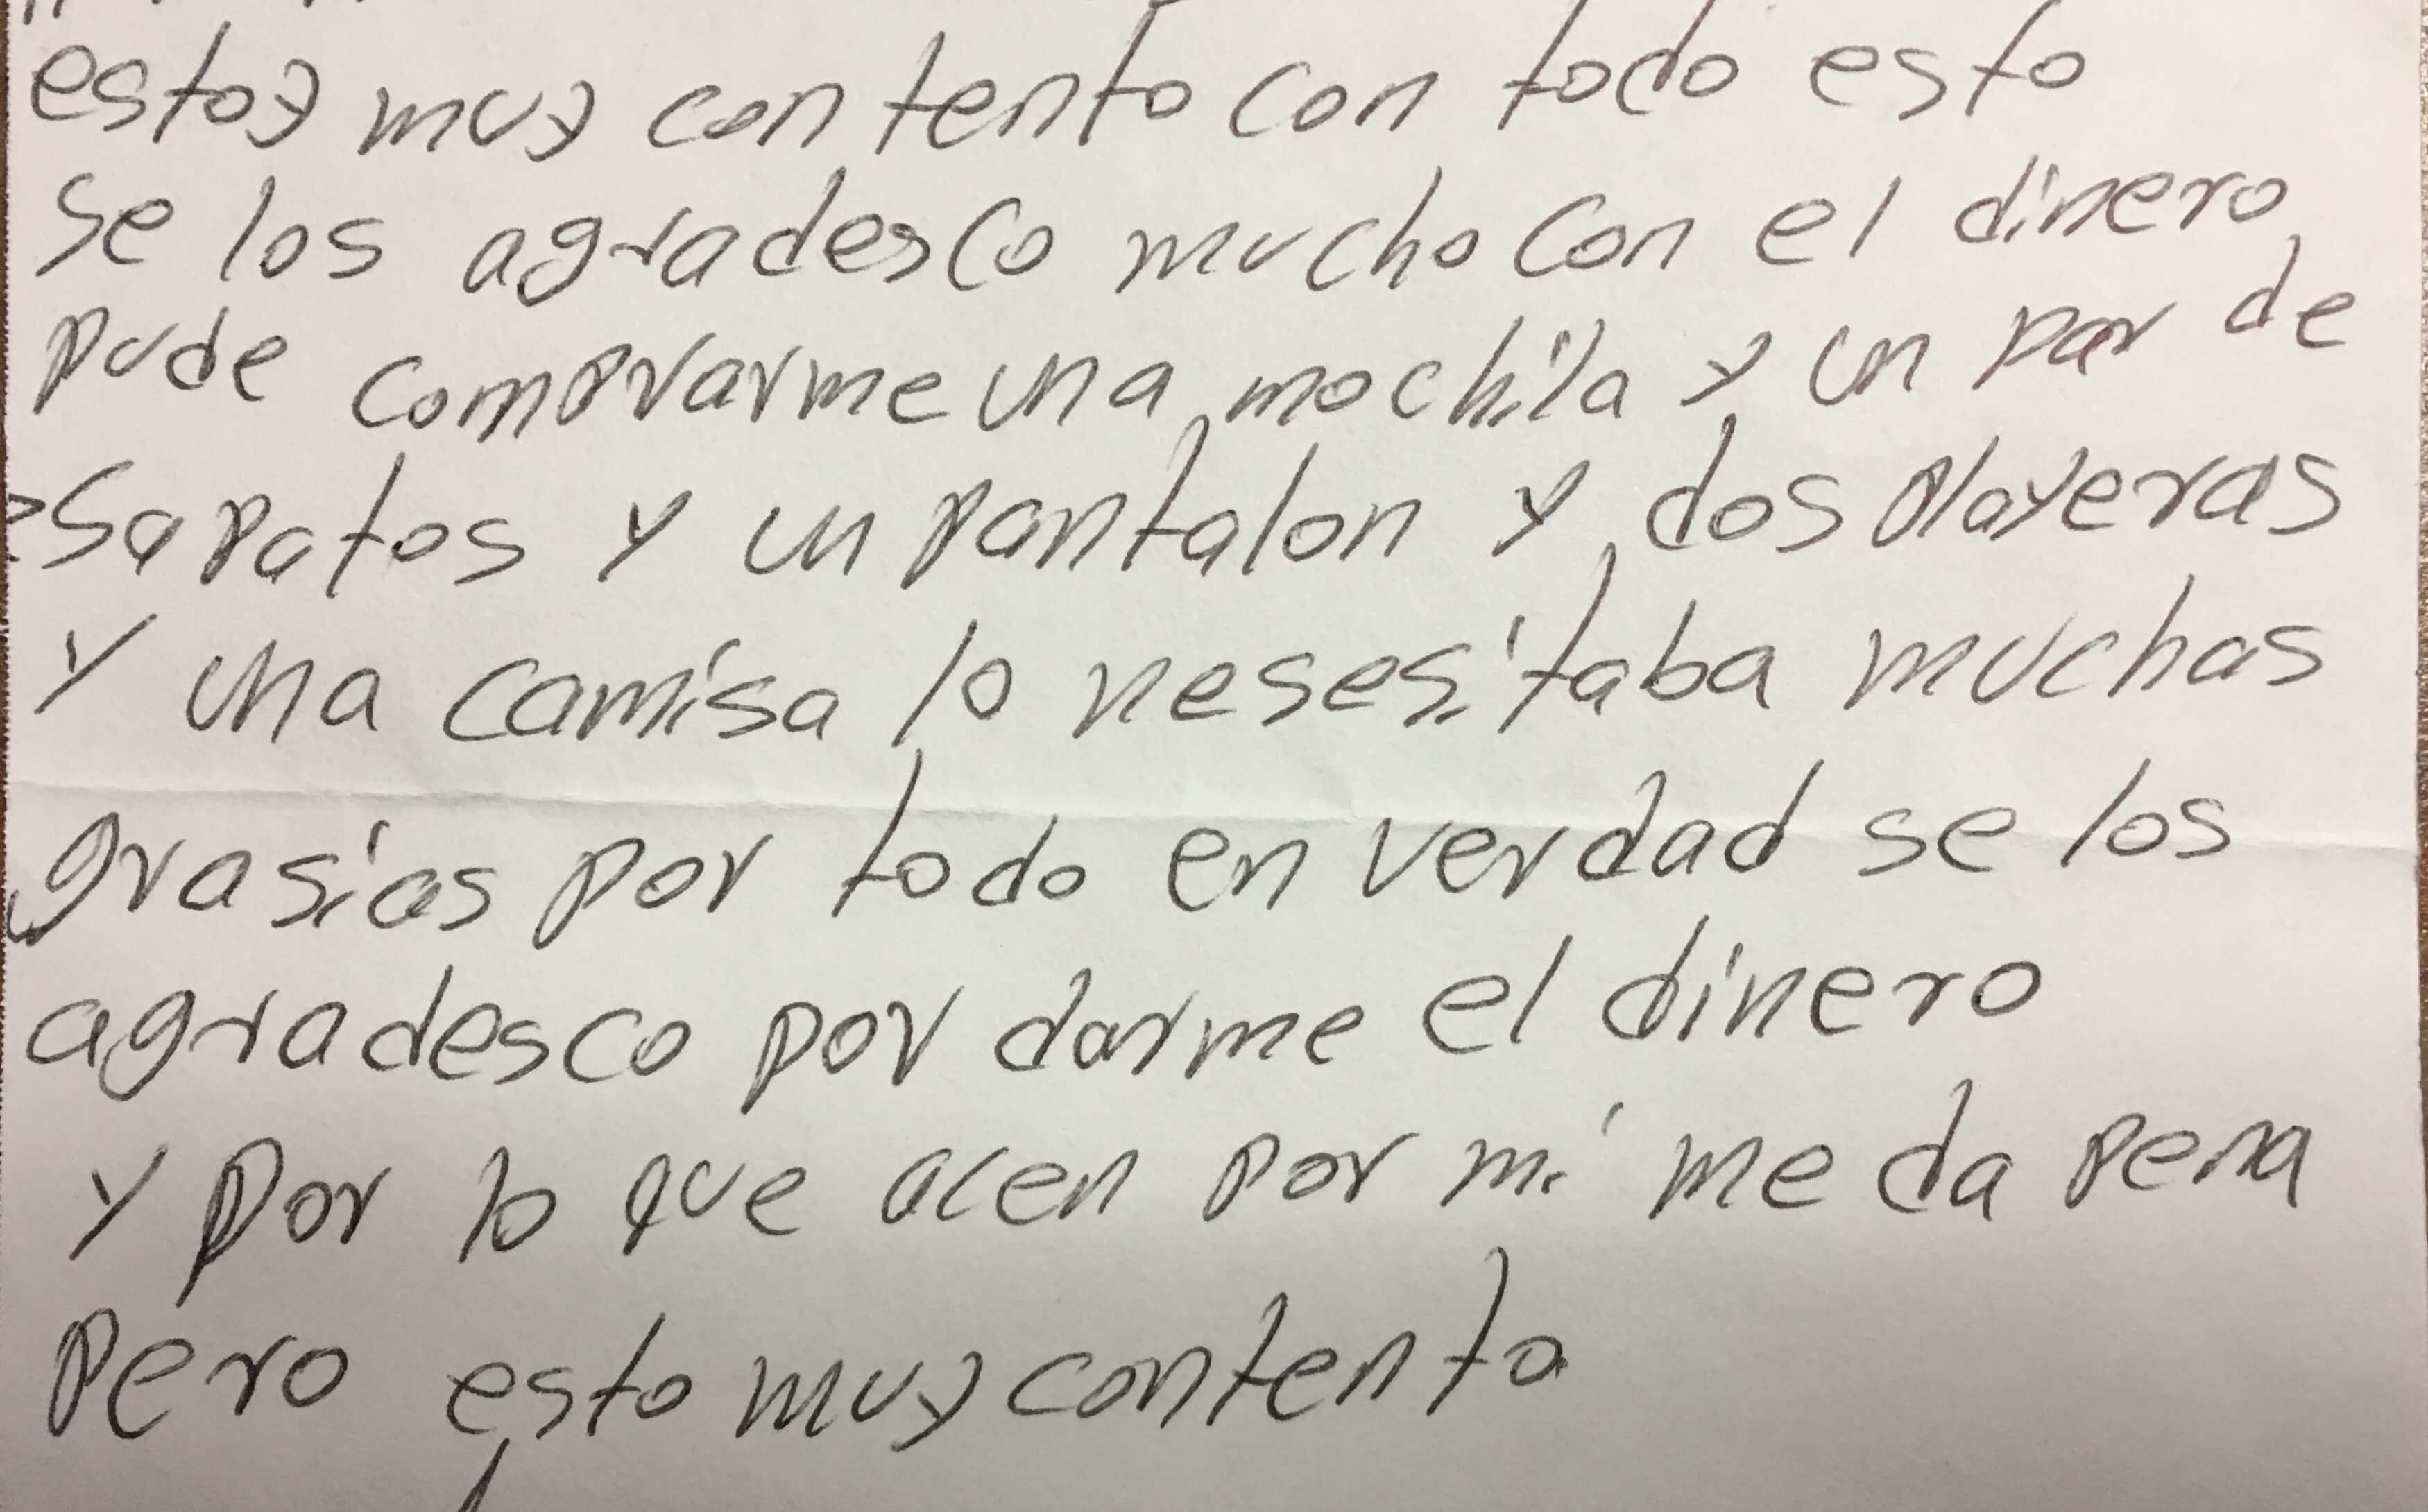 estoy muy contento con todo esto
se los agradesco mucho con el dinero
pude comprarme una mochila y un par de
sapatos y un pantalon y dos playeras
y una camisa lo nesesitaba muchas
grasias por todo en verdad se los
agradesco por darme el dinero
y por lo que acen por mi me da pena
pero esto muy contento